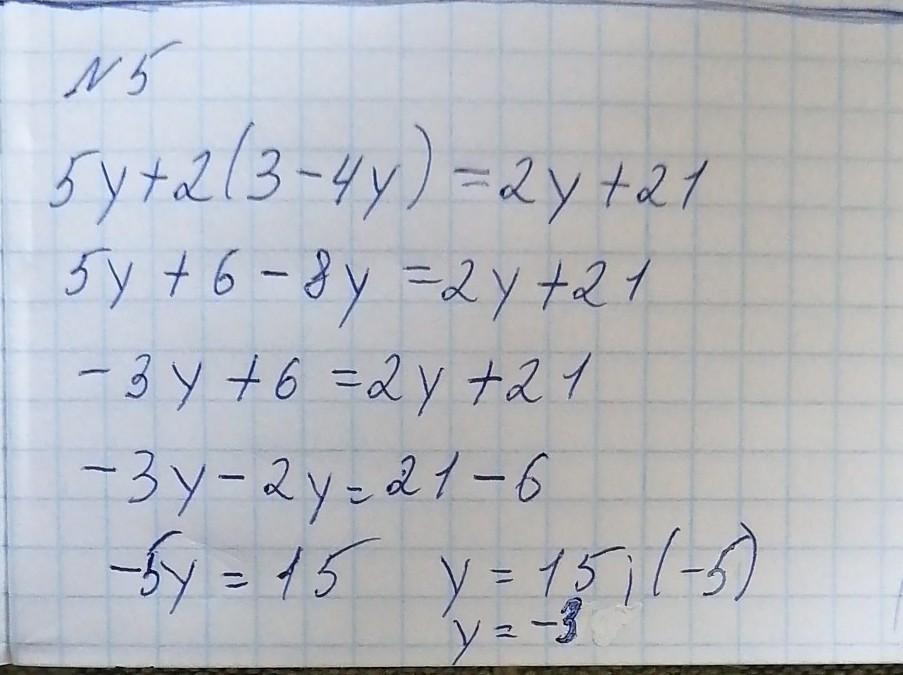 N 5
5y+2(3-4y)=2y+21
5y+6-8y=2y+21
-3y+6=2y+21
-3y-2y=21-6
-5y=15 y=15:(-5)
y=-3